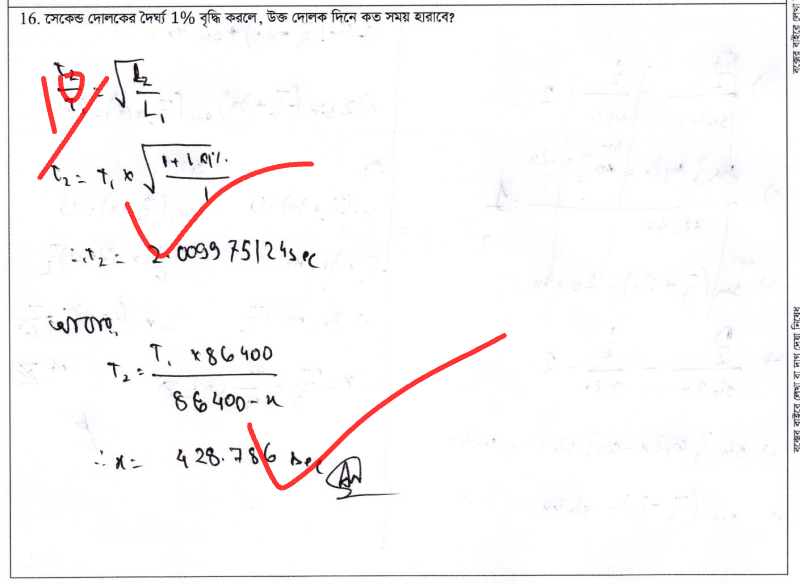 16. সেকেন্ড দোলকের দৈর্ঘ্য 1% বৃদ্ধি করলে, উক্ত দোলক দিনে কত সময় হারাবে?
10
T₂/T₁ = √(L₂/L₁)
T₂ = T₁ × √((1+1.01%)/1)
∴ T₂ = 2.009975124 sec
আবার,
T₂ = (T₁ × 86400)/(86400 - x)
∴ x = 428.786 sec
Ans
বক্সের বাইরে লেখা বা দাগ দেয়া নিষেধ